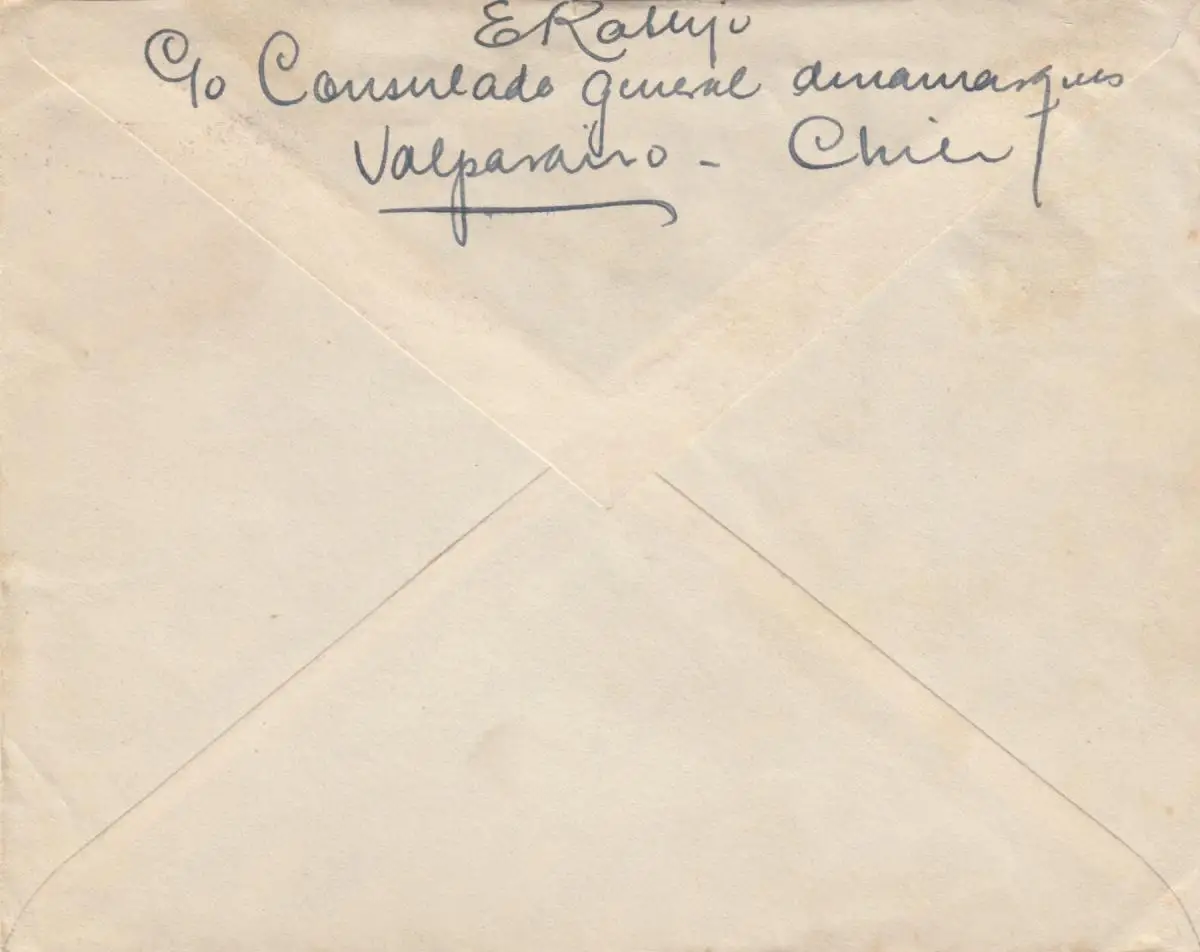 c/o Consulado general dinamarques
Valparaiso - Chile